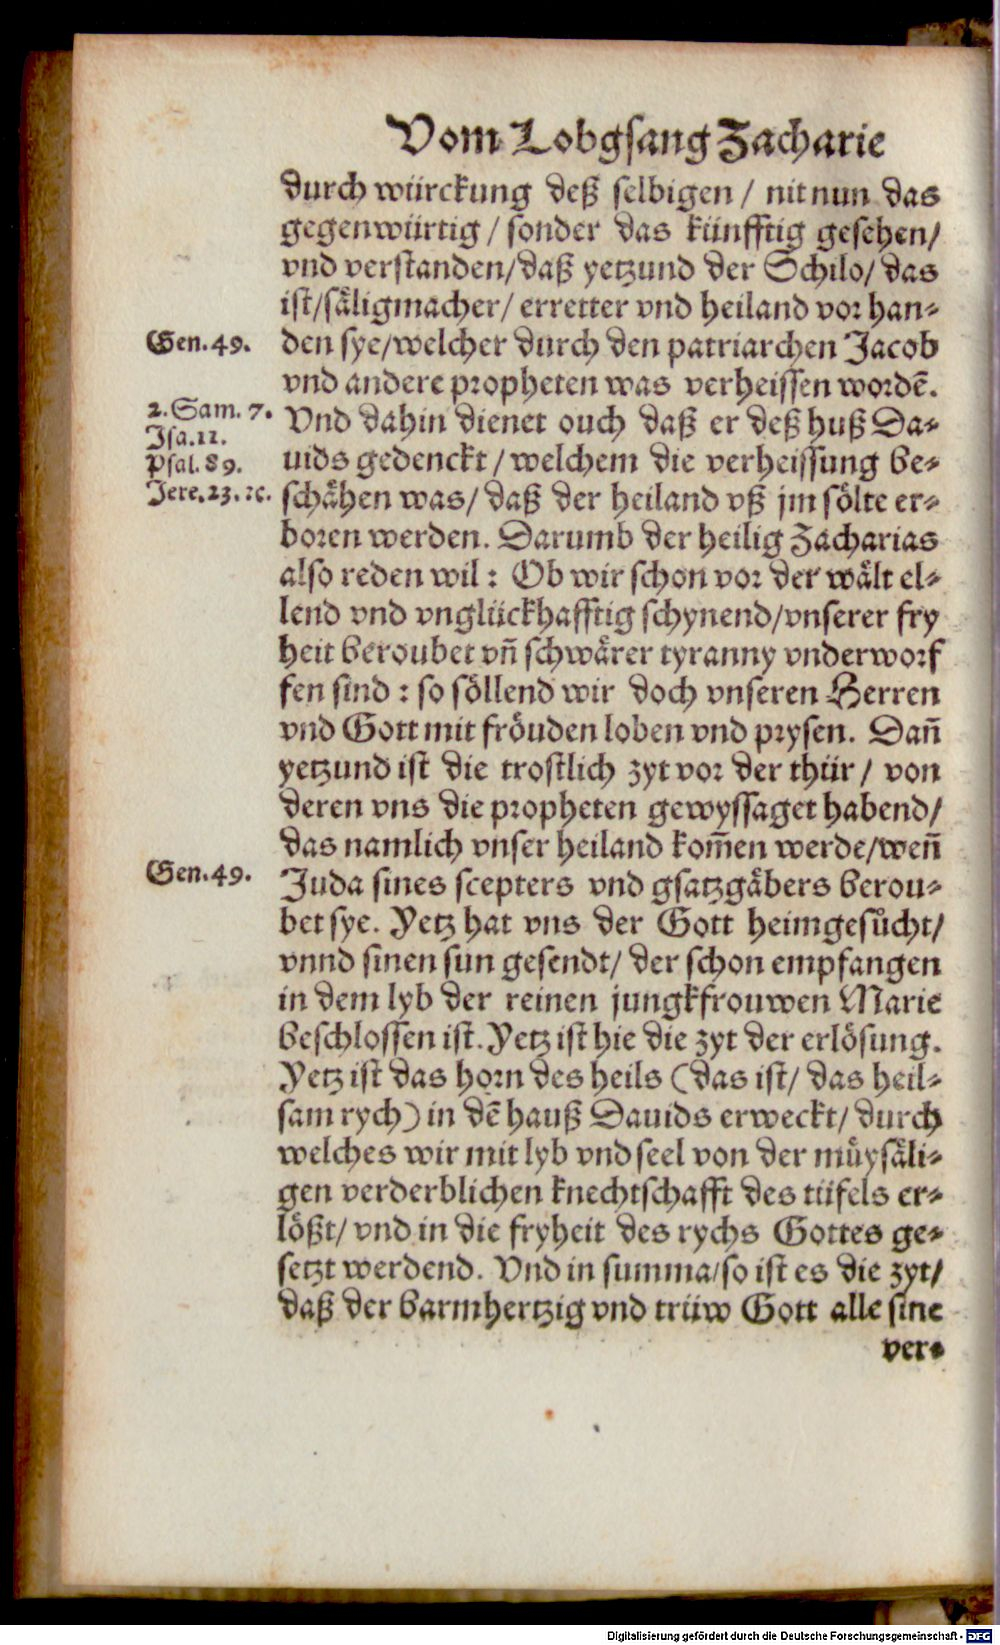 Vom Lobgsang Zacharie
durch würckung deß selbigen / nit nun das
gegenwürtig / sonder das künfftig gesehen/
vnd verstanden/daß yetzund der Schilo/ das
ist/säligmacher/ erretter vnd heiland vor han-
Gen.49.
den sye/welcher durch den patriarchen Jacob
vnd andere propheten was verheissen wordē.
2.Sam. 7.
Vnd dahin dienet ouch daß er deß huß Da-
Jsa.11.
Psal. 89.
uids gedenckt / welchem die verheissung be-
Jere.23. ꝛc.
schähen was/ daß der heiland vß jm sölte er-
boren werden. Darumb der heilig Zacharias
also reden wil : Ob wir schon vor der wält el-
lend vnd vnglückhafftig schynend/vnserer fry
heit beroubet vn̄ schwärer tyranny vnderworf
fen sind : so söllend wir doch vnseren Herren
vnd Gott mit fröuden loben vnd prysen. Dan̄
yetzund ist die trostlich zyt vor der thür / von
deren vns die propheten gewyssaget habend/
das namlich vnser heiland kom̄en werde/wen̄
Gen.49.
Juda sines scepters vnd gsatzgäbers berou-
bet sye. Yetz hat vns der Gott heimgesůcht/
vnnd sinen sun gesendt/ der schon empfangen
in dem lyb der reinen jungkfrouwen Marie
beschlossen ist. Yetz ist hie die zyt der erlösung.
Yetz ist das horn des heils (das ist/ das heil-
sam rych) in dē hauß Dauids erweckt/ durch
welches wir mit lyb vnd seel von der müysäli-
gen verderblichen knechtschafft des tüfels er-
lößt/ vnd in die fryheit des rychs Gottes ge-
setzt werdend. Vnd in summa/so ist es die zyt/
daß der barmhertzig vnd trüw Gott alle sine
ver-
Digitalisierung gefördert durch die Deutsche Forschungsgemeinschaft - DFG